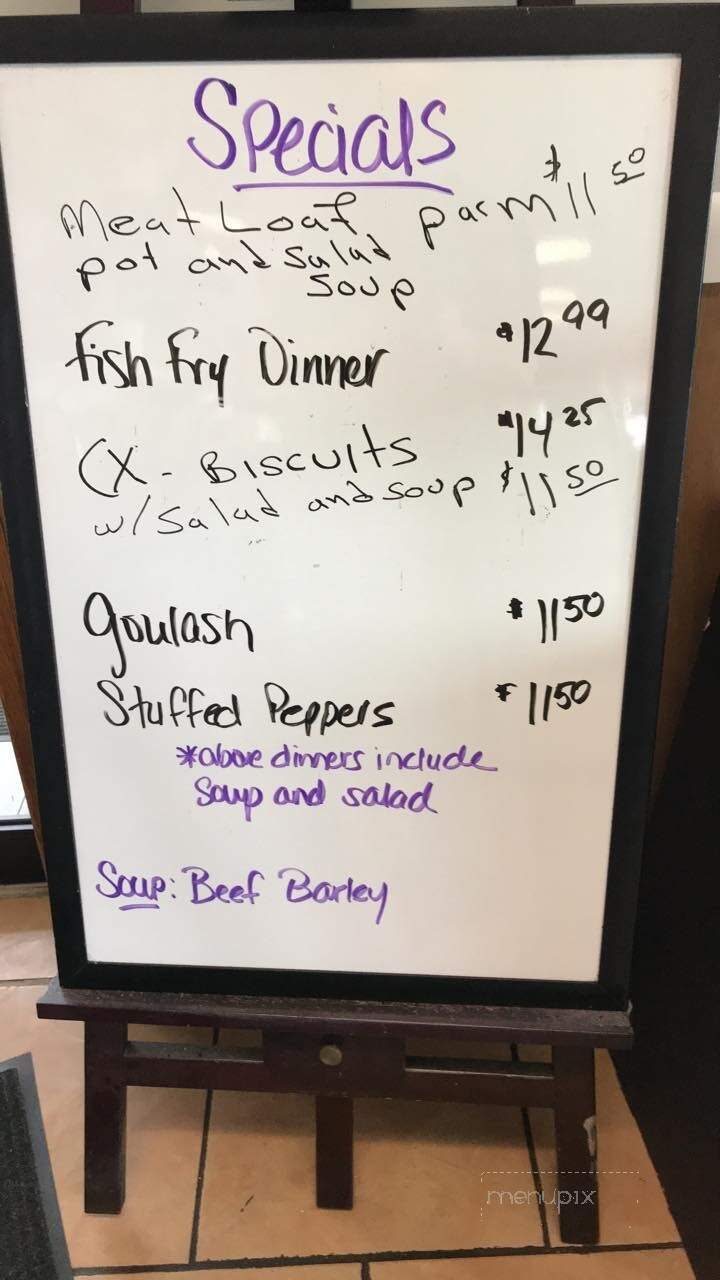 Specials
Meat Loaf parm $11 50
pot and salad
soup
Fish Fry Dinner $12 99
$14 25
CX - BISCUITS
w/ salad and soup $11 50
goulash $11 50
Stuffed Peppers $11 50
*above dinners include
Soup and salad
Soup: Beef Barley
menupix